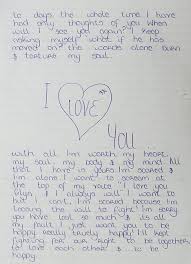 to days the whole time I have
had only thoughts of you when
will I see you again I keep
asking myself what if he has
moved on the words alone burn
& torture my soul.
I
LOVE
YOU
with all I'm worth my heart
my soul my body & my mind. All
that I have is yours I'm scared &
I'm alone I want to scream at
the top of my voice I love you
I always will I want to
but I can't, I'm scared because I'm
loosing the will to fight I'm sorry
you have lost so much & its all
my fault I just want you to be
happy really truely happy I'll keep
fighting for our right to be together
to love each other & to be
happy